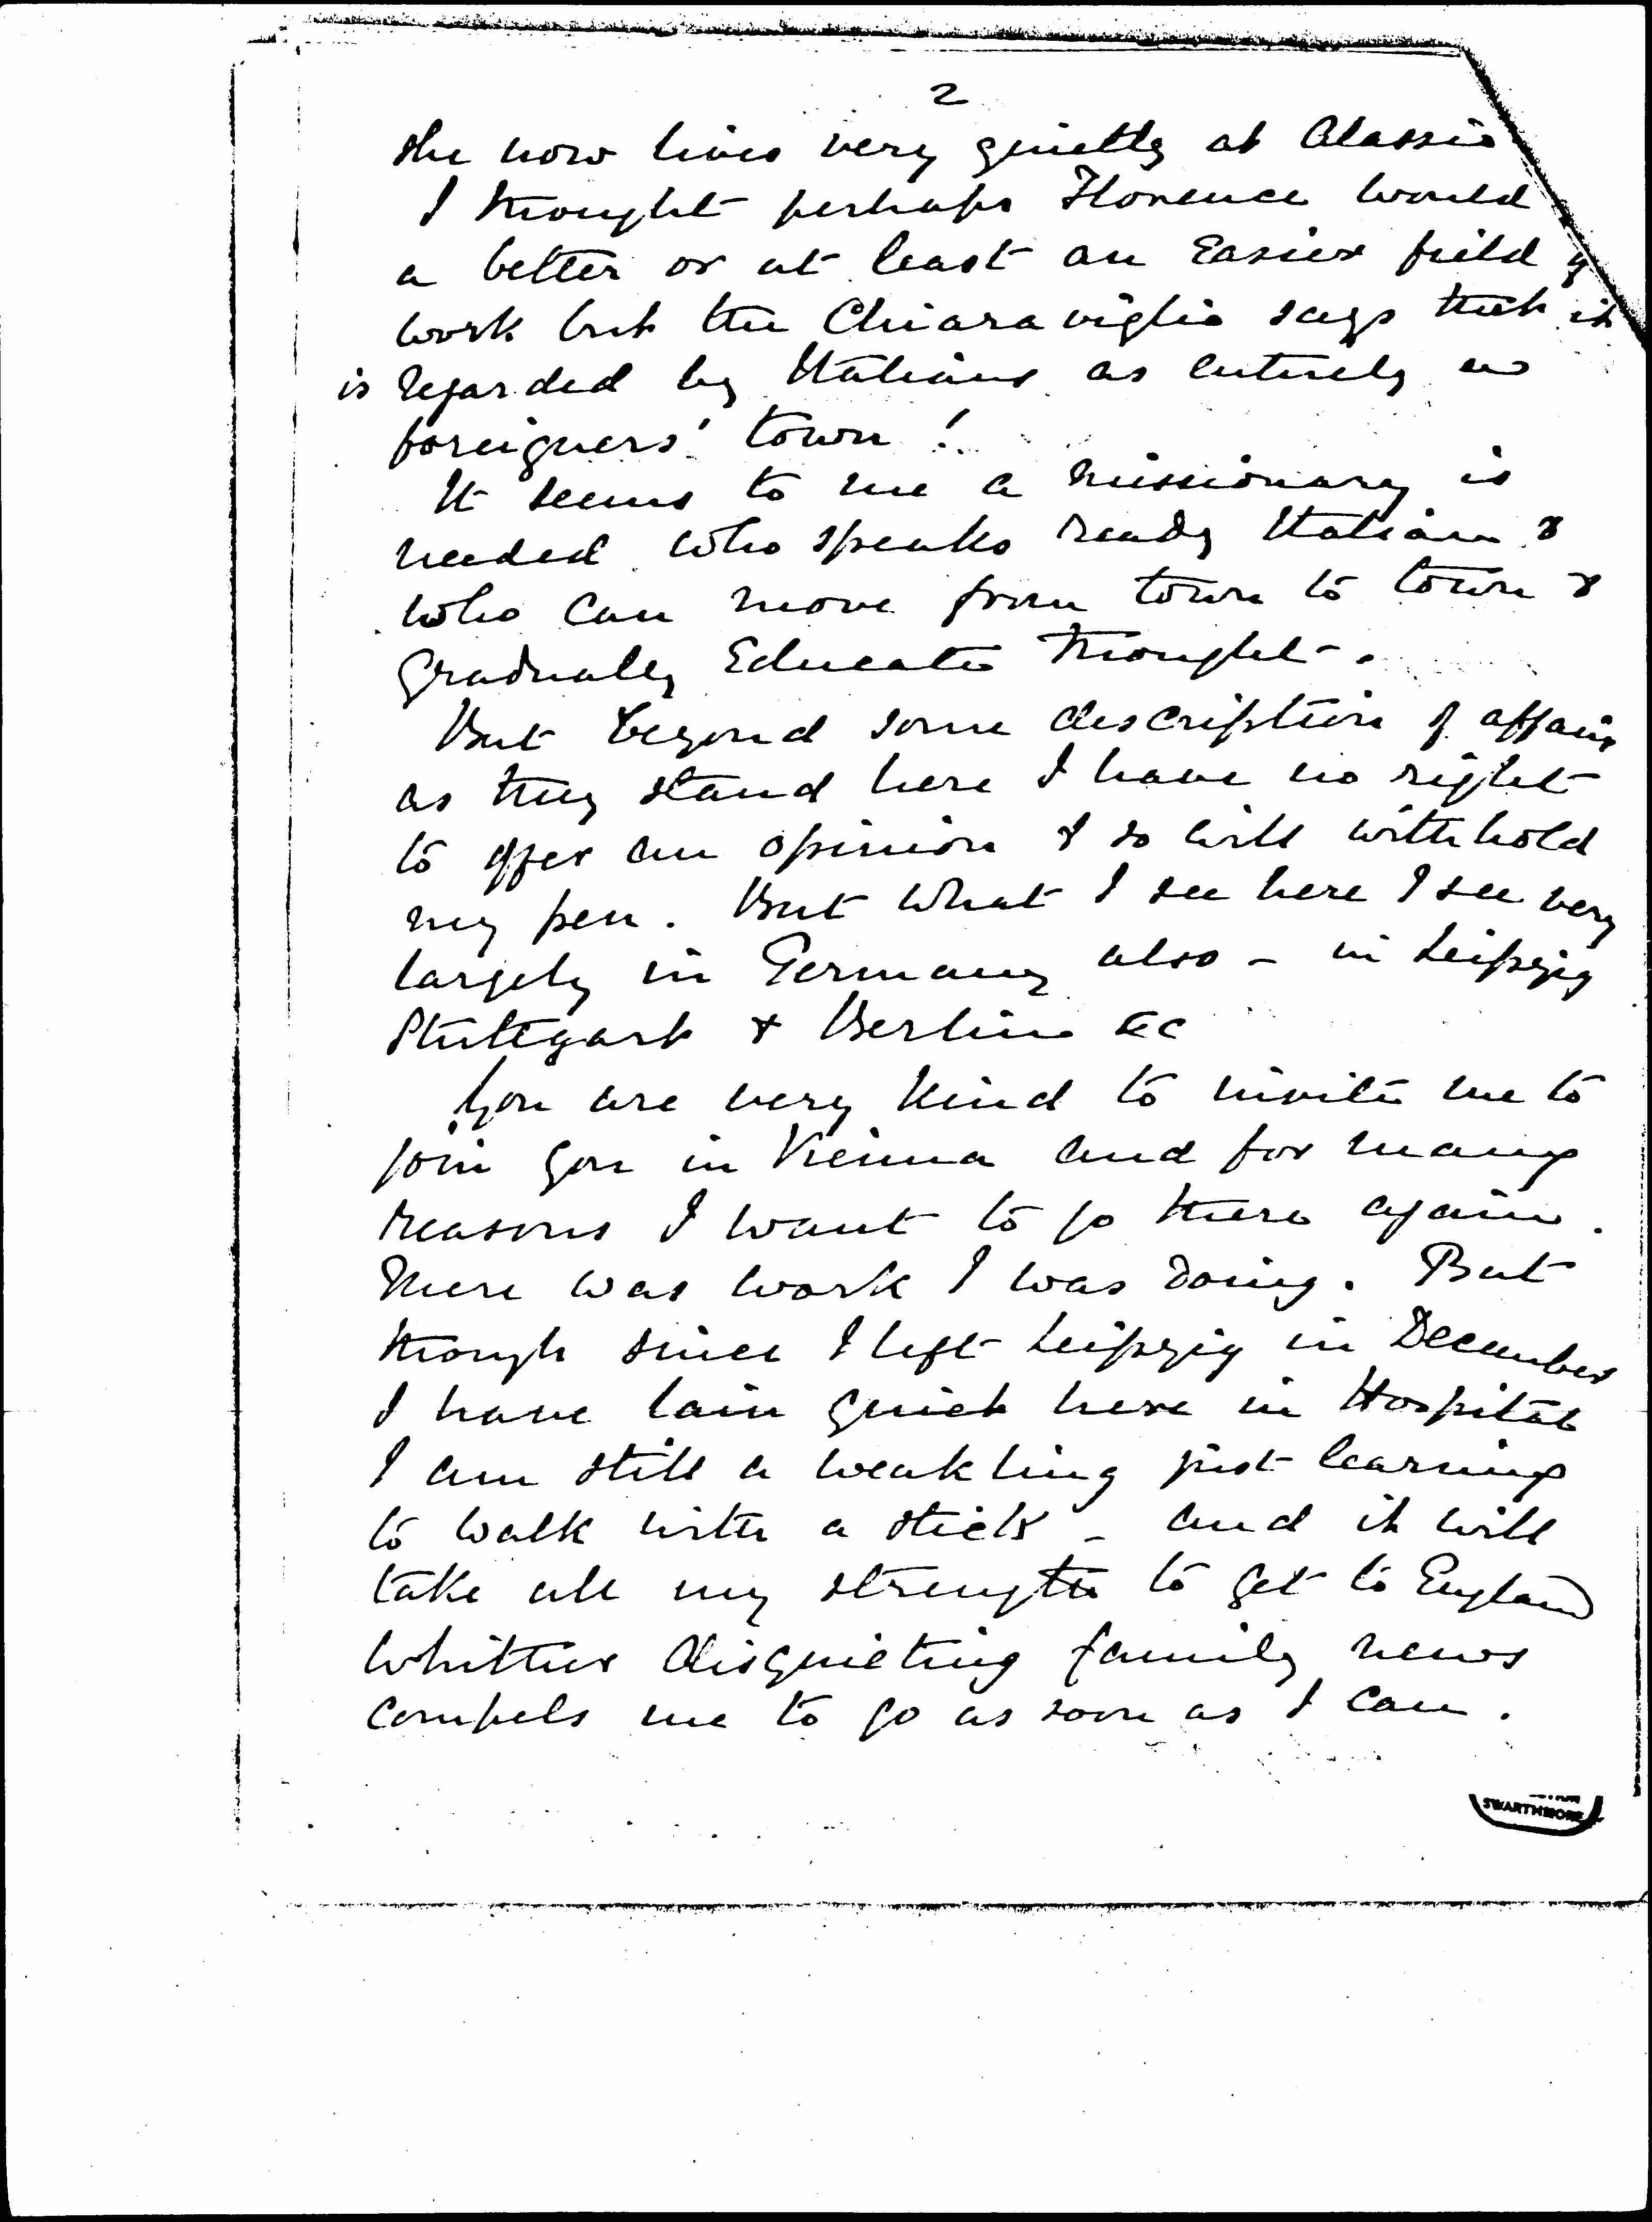 2
she now lives very quietly at Alassio
I thought perhaps Florence would
a better or at least an easier field of
work but the Chiaraviglio says that it
is regarded by Italians as entirely a
foreigners' town!
It seems to me a missionary is
needed who speaks ready Italian &
who can move from town to town &
gradually educate thought.
But beyond some description of affairs
as they stand here I have no right
to offer an opinion & so will withhold
my pen. But what I see here I see very
largely in Germany also – in Leipzig
Stuttgart & Berlin &c
You are very kind to invite me to
join you in Vienna and for many
reasons I want to go there again.
There was work I was doing. But
though since I left Leipzig in December
I have lain quiet here in Hospital
I am still a weakling just learning
to walk with a stick – and it will
take all my strength to get to England
whither disquieting family news
compels me to go as soon as I can.
SWARTHMORE